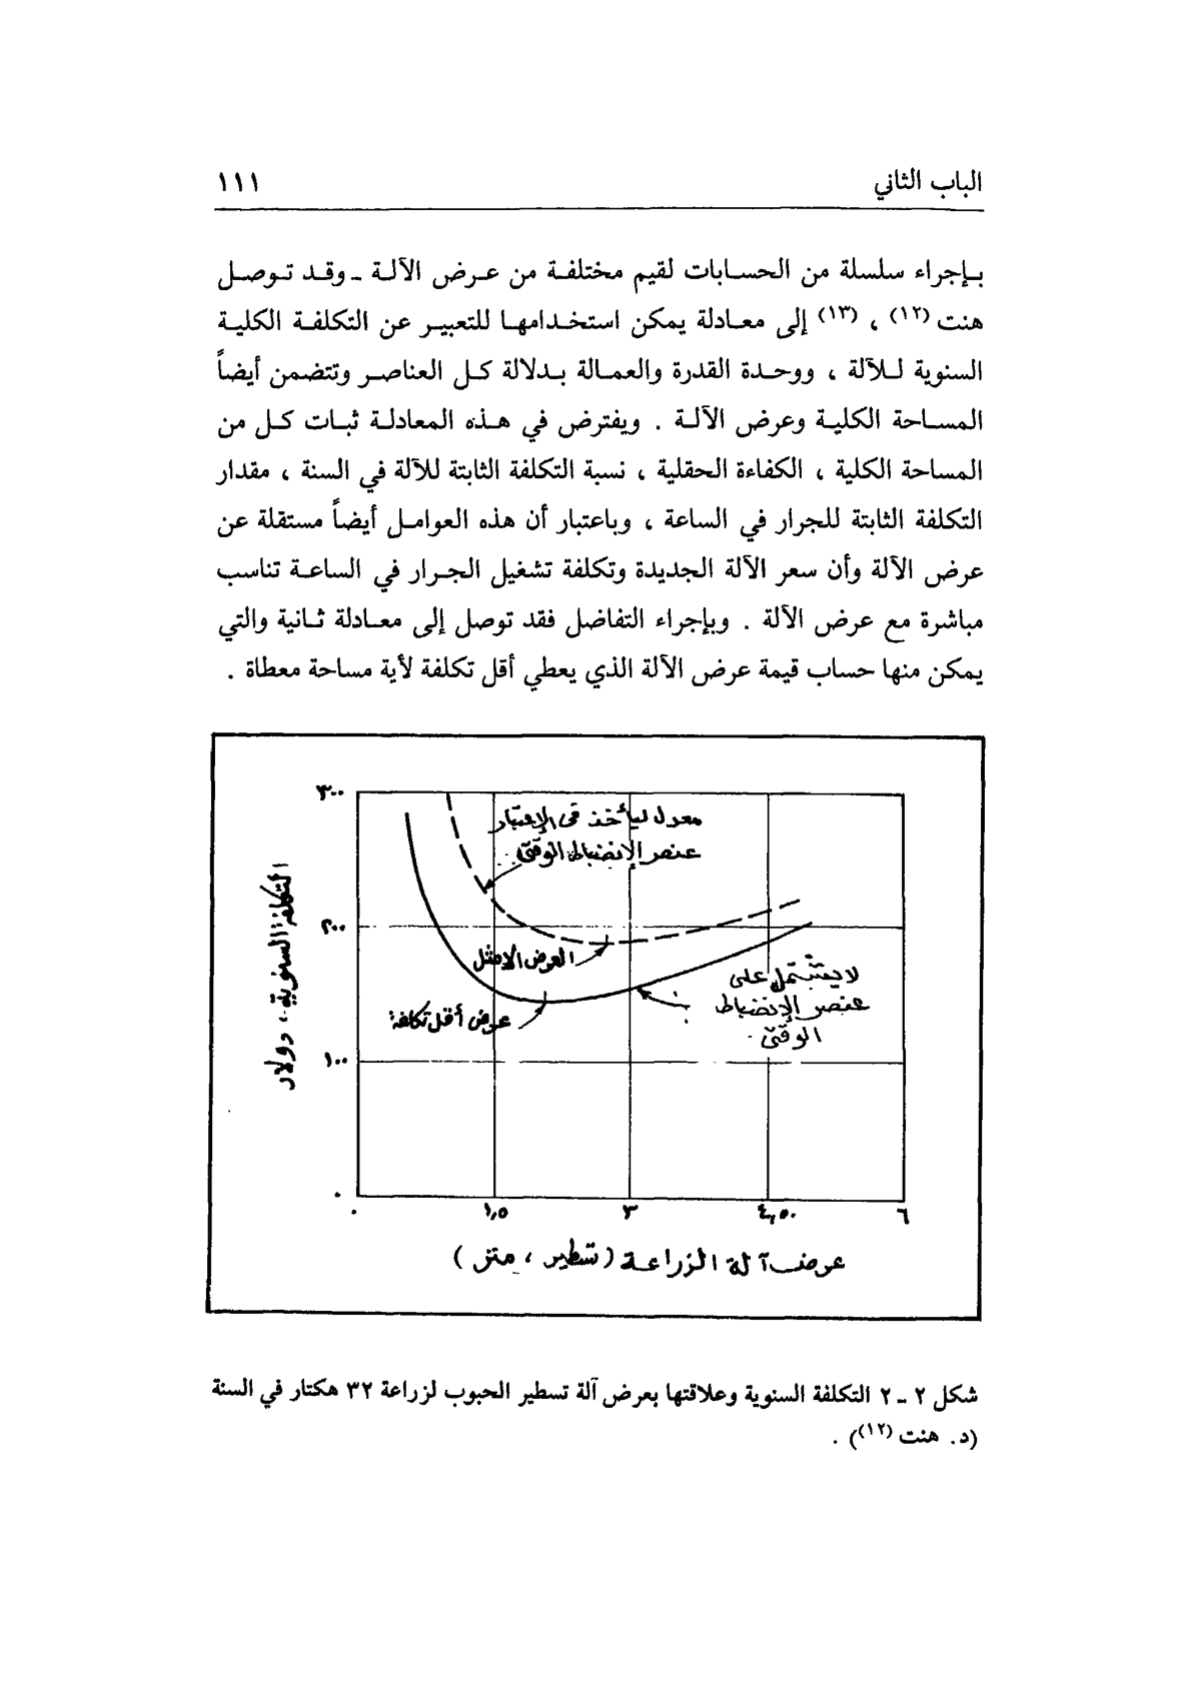 الباب الثاني ١١١
بإجراء سلسلة من الحسابات لقيم مختلفة من عرض الآلة ـ وقد توصل
هنت (١٢) ، (١٣) إلى معادلة يمكن استخدامها للتعبير عن التكلفة الكلية
السنوية للآلة ، ووحدة القدرة والعمالة بدلالة كل العناصر وتتضمن أيضاً
المساحة الكلية وعرض الآلة . ويفترض في هذه المعادلة ثبات كل من
المساحة الكلية ، الكفاءة الحقلية ، نسبة التكلفة الثابتة للآلة في السنة ، مقدار
التكلفة الثابتة للجرار في الساعة ، وباعتبار أن هذه العوامل أيضاً مستقلة عن
عرض الآلة وأن سعر الآلة الجديدة وتكلفة تشغيل الجرار في الساعة تناسب
مباشرة مع عرض الآلة . وبإجراء التفاضل فقد توصل إلى معادلة ثانية والتي
يمكن منها حساب قيمة عرض الآلة الذي يعطي أقل تكلفة لأية مساحة معطاة .
٣٠٠
معدل ليأخذ فى الإعتبار
عنصر الإنضباط الوقتى
التكلفة السنوية ، دولار
٢٠٠
العرض الأمثل
لا يشتمل على
عنصر الإنضباط
الوقتى
عرض أقل تكلفة
١٠٠
٠
٠ ١,٥ ٣ ٤,٥٠ ٦
عرض آلة الزراعة (تسطير ، متر)
شكل ٢ ـ ٢ التكلفة السنوية وعلاقتها بعرض آلة تسطير الحبوب لزراعة ٣٢ هكتار في السنة
(د. هنت (١٢)) .